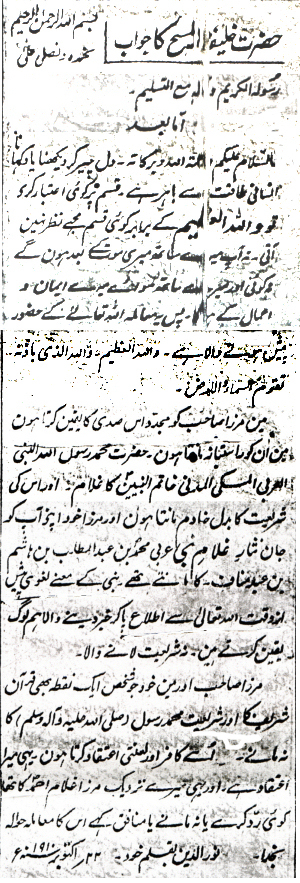 بسم اللہ الرحمن الرحیم
نحمدہ و نصلی علی
حضرت خلیفۃ المسیح کا جواب
رسولہ الکریم و آلہ مع التسلیم۔
اما بعد
السلام علیکم ورحمۃ اللہ وبرکاتہ۔ دل چیر کر دیکھنا یا دکھانا
انسانی طاقت سے باہر ہے۔ قسم پر کوئی اعتبار کرے
تو واللہ العظیم کے برابر کوئی قسم مجھے نظر نہیں
آتی۔ نہ آپ میرے ساتھ میری موت کے بعد ہوں گے
نہ کوئی اور میرے ساتھ سوائے میرے ایمان و
اعمال کے ہوگا۔ پس یہ معاملہ اللہ تعالےٰ کے حضور
پیش ہونے والا ہے۔ واللہ العظیم۔ واللہ الذی باذنہ
تقوم السماء والارض۔
میں مرزا صاحب کو مجدد اس صدی کا یقین کرتا ہوں
میں ان کو راستباز مانتا ہوں۔ حضرت محمد رسول اللہ النبی
العربی المکی المدنی خاتم النبیین کا غلام۔ اور اس کی
شریعت کا بدل خادم مانتا ہوں اور مرزا خود اپنے آپ کو
جان نثار غلام نبی عربی محمد بن عبد المطلب بن ہاشم
بن عبد مناف۔ کا مانتے تھے۔ نبی کے معنے لغوی پیش
از وقت اللہ تعالےٰ سے اطلاع پا کر خبر دینے والا ہم لوگ
یقین کرتے ہیں۔ نہ شریعت لانے والا۔
مرزا صاحب اور میں خود جو شخص ایک نقطہ بھی قرآن
شریف کا اور شریعت محمد رسول (صلی اللہ علیہ وآلہ وسلم) کا
نہ مانے۔ اُسے کافر اور لعنتی اعتقاد کرتا ہوں۔ یہی میرا
اعتقاد ہے۔ اور یہی میرے نزدیک مرزا غلام احمد کا تھا
کوئی رد کرے یا نہ مانے یا منافق کہے اس کا معاملہ حوالہ
بخدا۔ نور الدین بقلم خود۔ ۲۲ اکتوبر ۱۹۱۰ء